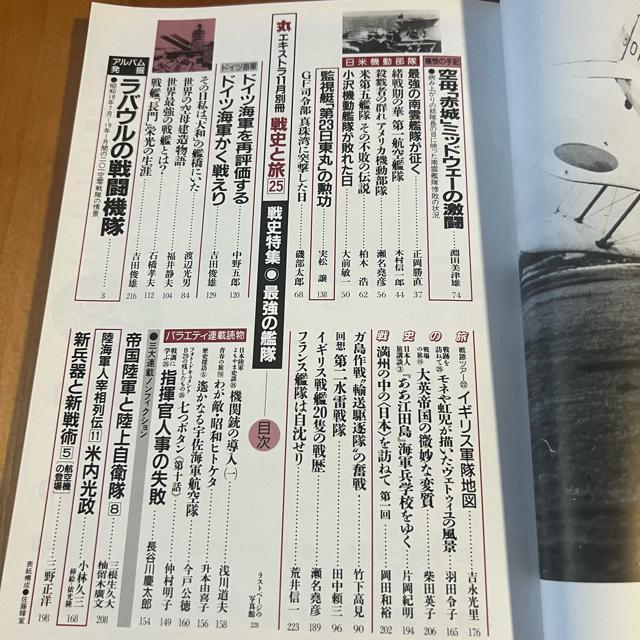 丸エキストラ11月別冊 戦史と旅 25
戦史特集●最強の艦隊 目次
痛恨の手記
空母「赤城」ミッドウェーの激闘 淵田美津雄 74
日米機動部隊
最強の南雲艦隊が征く 正岡勝直 37
緒戦期の華 第一航空艦隊 木村信一郎 44
殺戮者の群れ アメリカ機動部隊 瀬名堯彦 56
米第五艦隊 その不敗の伝説 柏木浩 62
小沢機動艦隊が敗れた日 大前敏一 50
監視艇「第23日東丸」の勲功 実松譲 138
GF司令部 真珠湾に突撃した日 磯部太郎 68
ドイツ海軍
ドイツ海軍を再評価する 中野五郎 120
ドイツ海軍かく戦えり 吉田俊雄 129
その日私は「大和」の艦橋にいた
世界の空母建造物語 渡辺光男 84
世界最強の戦艦とは? 福井静夫 104
戦艦「長門」栄光の生涯 石橋孝夫 112
吉田俊雄 216
アルバム発掘
ラバウルの戦闘機隊 3
戦史の旅
戦跡ツアー⑫ イギリス軍隊地図 吉永光里 176
モネや虹児が描いたヴェトゥイユの風景 羽田令子 165
大英帝国の微妙な変質 柴田英子 206
「ああ江田島」海軍兵学校をゆく 片岡紀明 194
満州の中〈日本〉を訪ねて 第一回 岡田和裕 202
ガ島作戦“輸送駆逐隊”の奮戦 竹下高見 90
回想 第一水雷戦隊 田中頼三 96
イギリス戦艦20隻の戦歴 瀬名堯彦 189
フランス艦隊は自沈せり 荒井信一 223
ラストページの写真館 228
バラエティ連載読物
機関銃の導入(一) 浅川道夫 158
青春の旅⑲ わが敵・昭和ヒトケタ 升本由喜子 156
歴史探訪⑤ 遥かなる宇佐海軍航空隊 今戸公徳 160
七つボタン〈第十話〉 仲村明子 149
指揮官人事の失敗 長谷川慶太郎 154
●三大連載ノンフィクション
帝国陸軍と陸上自衛隊 8 三根生久大 柚留木廣文 208
陸海軍人宰相列伝 11 米内光政 小林久三 168
新兵器と新戦術 5 「航空機の登場」 三野正洋 198
表紙構成●佐藤輝宣